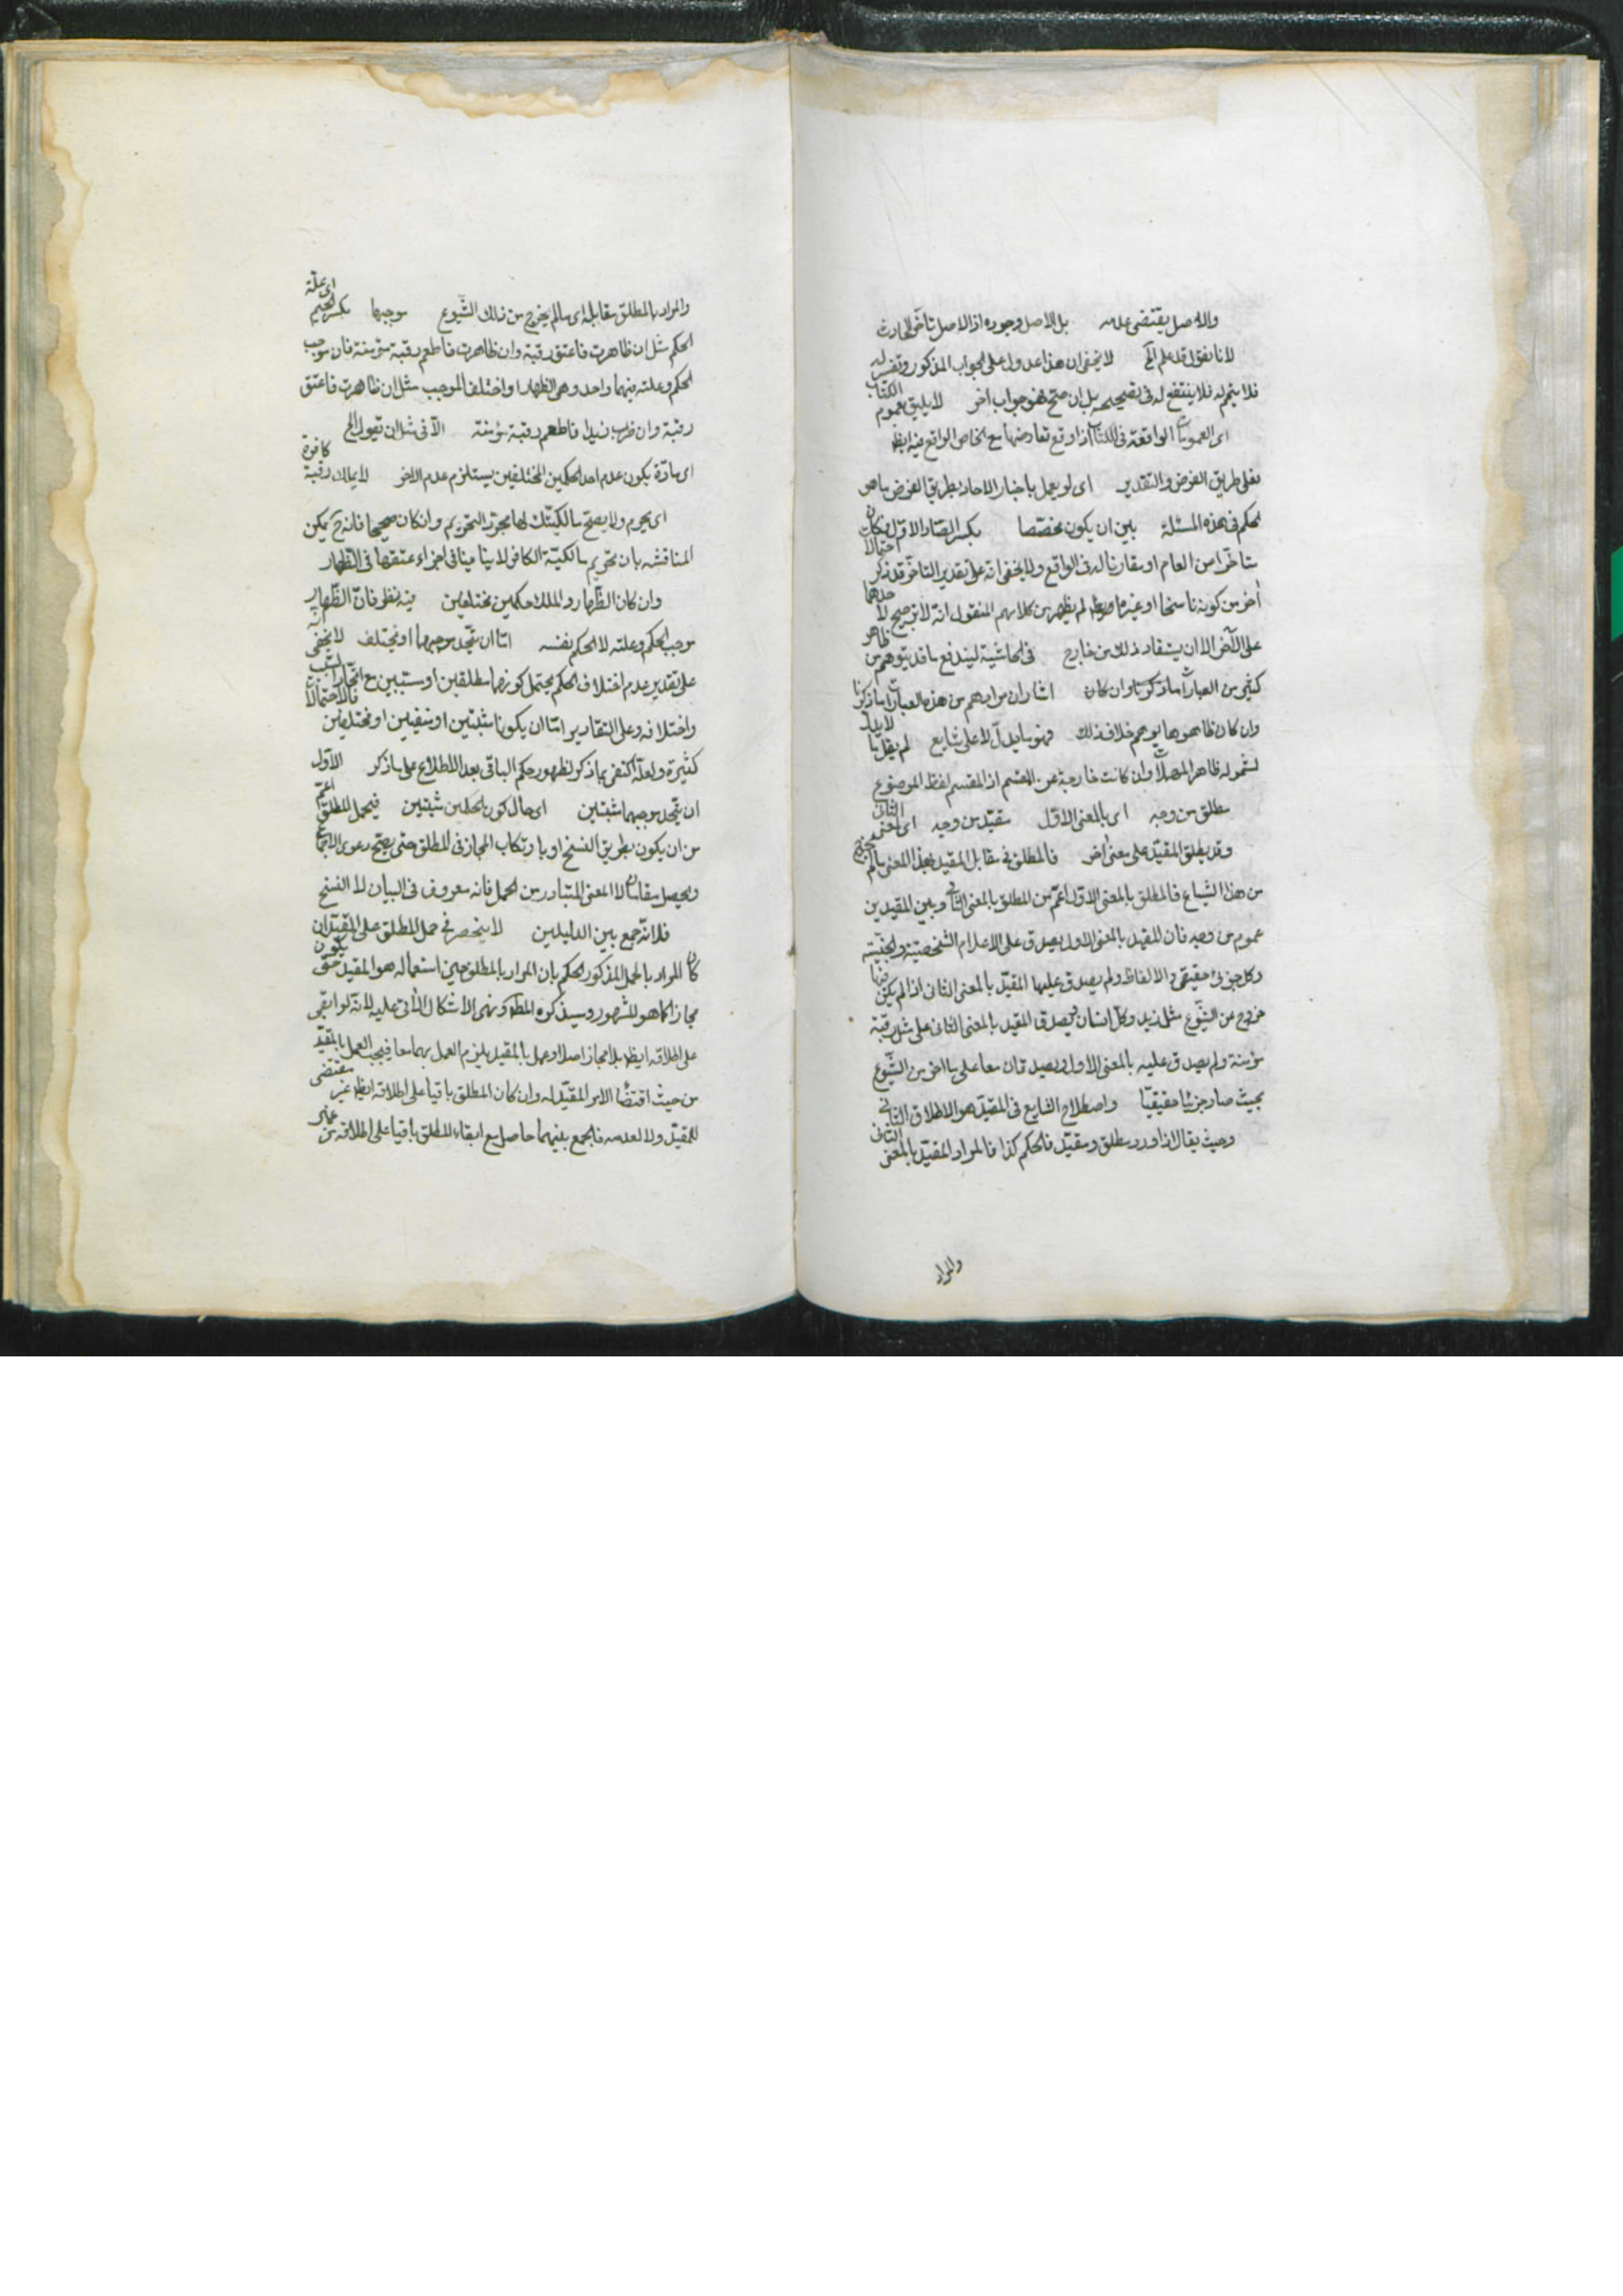 والاصل يقتضى عدمه بل الاصل وجوده اذ الاصل تأخر الحادث
لانا نقول قد علم الخ لا يخفى ان هذا عدول عن الجواب المذكور وتفسير له
فلا يتم له فلا ينتفع له فى تصحيحه بل ان صح فهو جواب اخر لا يليق بعموم الكتاب
اى العمومات الواقعة فى الكتاب اذا وقع تعارضها مع الخاص الواقع فيه ايظ
فعلى طريق الفرض والتقدير اى لو يعمل باخبار الاحاد بطريق الفرض ما هو
الحكم فى هذه المسئلة بين ان يكون مخصصا بكسر الصاد الاول فكان
متاخرا من العام او مقارنا له فى الواقع ولا يخفى انه على تقدير التاخر قد ذكر احتمالا
اخر من كونه ناسخا او غيره لم يظهر من كلامهم المنقول انه لا ترجيح لا حدهما
على الآخر الا ان يستفاد ذلك من خارج فى الحاشية ليندفع ما قد يتوهم من ظاهر
كثير من العبارات ما ذكرنا وان كان اشار ان مرادهم من هذه العبارات ما ذكرنا
وان كان ظاهرها يوهم خلاف ذلك فهو ما يدل لا على شايع لم يقل ما لا يدل
لشموله ظاهر المهملات وان كانت خارجة عن المقسم اذ المقسم لفظ الموضوع
مطلق من وجه اى بالمعنى الاول مقيد من وجه اى المعنى الثانى
وقد يطلق المقيد على معنى اخر فالمطلق فى مقابل المقيد بهذا المعنى ما لم يخرج
من هذا الشياع فالمطلق بالمعنى الاول اعم من المطلق بالمعنى الثانى وبين المقيدين
عموم من وجه فان المقيد بالمعنى الاول يصدق على الاعلام الشخصية والجنسية
وكل جزئى حقيقى والالفاظ ولم يصدق عليها المقيد بالمعنى الثانى اذ لم يكن فيها
خروج عن الشيوع مثل زيد وكل انسان ويصدق المقيد بالمعنى الثانى على مثل رقبة
مؤمنة ولم يصدق عليه بالمعنى الاول ويصدقان معا على ما اخرج من الشيوع
بحيث صار جزئيا حقيقيا واصطلاح الشايع فى المقيد هو الاطلاق الثانى
وحيث يقال اذا ورد مطلق ومقيد فالحكم كذا فالمراد المقيد بالمعنى الثانى
والمراد
والمراد بالمطلق مقابله اى ما لم يخرج من ذلك الشيوع موجبهما بكسر الجيم اى علة
الحكم مثل ان ظاهرت فاعتق رقبة وان ظاهرت فاطعم رقبة مؤمنة فان موجب
الحكم وعلته فيهما واحد وهو الظهار او اختلف الموجب مثل ان ظاهرت فاعتق
رقبة وان ضرب زيدا فاطعم رقبة مؤمنة الا فى مثل ان تقول الخ
اى مادة يكون عدم احد الحكمين المختلفين يستلزم عدم الاخر لا يملك رقبة كافرة
اى يحرم ولا يصح مالكيتك لها مجرد التحريم وان كان صحيحا فانه ح يمكن
المناقشه بان تحريم مالكية الكافر لا ينافى اجزاء عتقها فى الظهار
وان كان الظهار والملك حكمين مختلفين فيه نظر فان الظهار
موجب الحكم وعلته لا الحكم نفسه اما ان يتحد موجبهما او يختلف لا يخفى انه
على تقدير عدم اختلاف الحكم يحتمل كونهما مطلقين او مسببين مع اتحاد السبب
واختلافه وعلى التقادير اما ان يكونا مثبتين او منفيين او مختلفين فالاحتمالات
كثيرة ولعله اكتفى بما ذكر لظهور حكم الباقى بعد الاطلاع على ما ذكر الاول
ان يتحد موجبهما مثبتين اى حال كون الحكمين مثبتين فيحمل المطلق اعم
من ان يكون بطريق النسخ او بارتكاب المجاز فى المطلق حتى يصح دعوى الاجماع
ويحصل مقاما لا المعنى المتبادر من الحمل فانه معروف فى البيان لا النسخ
فلانه جمع بين الدليلين لا ينحصر فى حمل المطلق على المقيد ان
كان المراد بالحمل المذكور الحكم بان المراد بالمطلق حين استعماله هو المقيد حتى يكون
مجازا كما هو المشهور وسيذكره المط وبهى الاشكال الآتى عليه لانه لو ابقى
على اطلاقه ايظ بلا مجاز اصلا وعمل بالمقيد يلزم العمل بهما معا فيجب العمل بالمقيد
من حيث اقتضاء الامر المقيد له وان كان المطلق باقيا على اطلاقه ايظ غير مقتضى
للمقيد ولا لعدمه فالجمع بينهما حاصل مع ابقاء المطلق باقيا على اطلاقه من غير